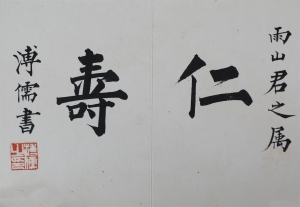 雨山君之属
仁壽
溥儒書